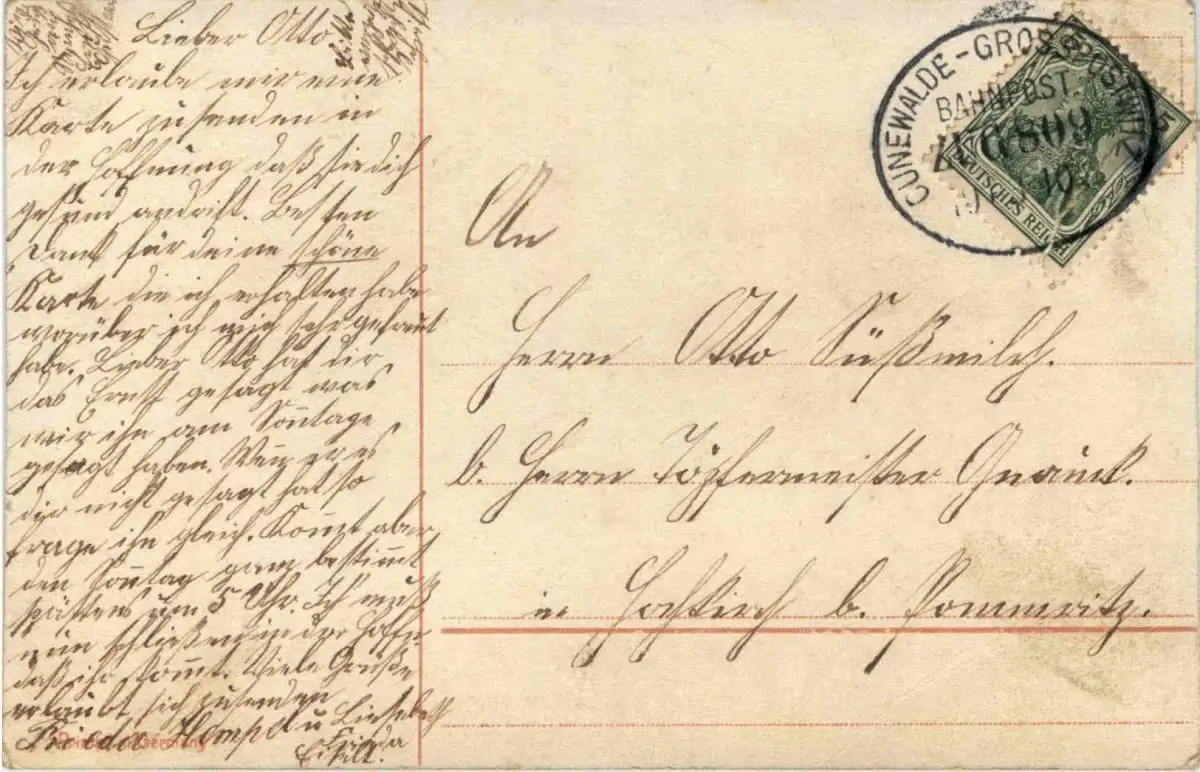 Lieber Otto
Ich erlaube mir eine
Karte zusenden in
der Hoffnung daß sie dich
gesund andrift. Besten
Dank für deine schöne
Karte die ich erhalten habe
worüber ich mich sehr gefreut
habe. Lieber Otto hat dir
das Ernst gesagt was
wir ihn am Sontage
gesagt haben. Wen er es
dir nicht gesagt hat so
frage ihn gleich. Kommt aber
den Sonntag ganz bestimmt
spättens um 5 Uhr. Ich muß
nun schließen in der Hoffn.
daß ihr kommt. Viele Grüße
erlaubt sich zusenden
Frieda Hempel u Liesbeth
CUNEWALDE-GROSS POSTWITZ
BAHNPOST.
ZUG 809
10
DEUTSCHES REICH
5
An
Herrn Otto Süßmilch.
b. Herrn Töpfermeister Gnauck.
in Hochkirch b. Pommritz.
Germany